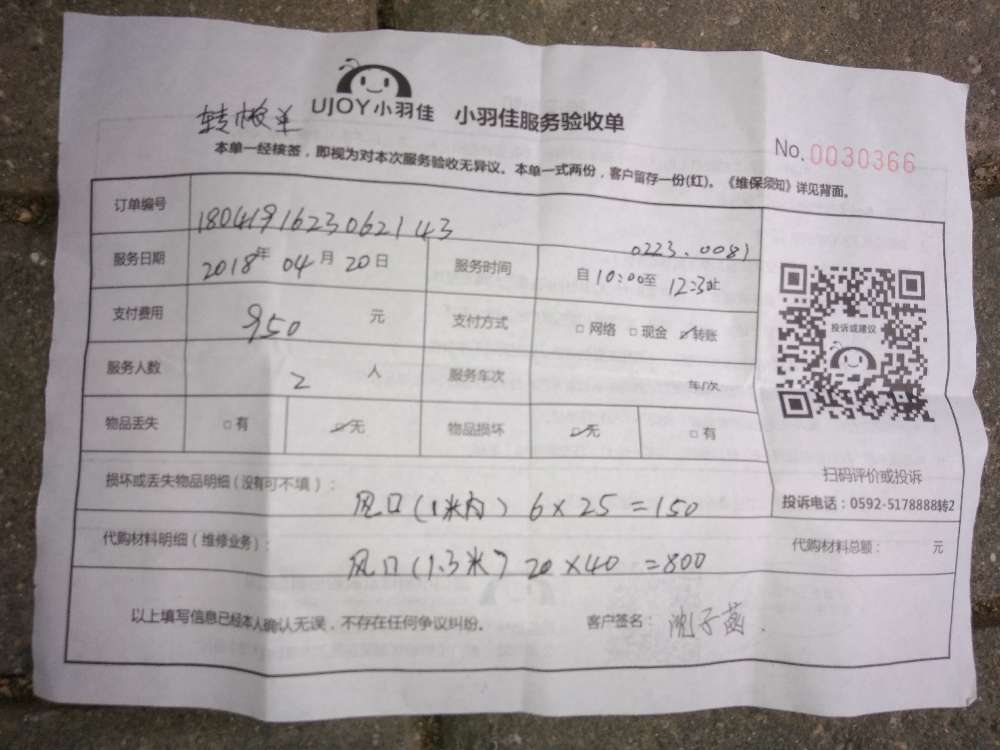 UJOY小羽佳 小羽佳服务验收单
No.0030366
本单一经核签，即视为对本次服务验收无异议。本单一式两份，客户留存一份(红)。《维保须知》详见背面。
订单编号 1804191623062143
0223.0081
服务日期 2018年04月20日 服务时间 自10:00至12:30止
支付费用 950 元 支付方式 □网络 □现金 ☑转账
服务人数 2 人 服务车次 车/次
物品丢失 □有 ☑无 物品损坏 ☑无 □有
投诉或建议
扫码评价或投诉
投诉电话：0592-5178888转2
损坏或丢失物品明细（没有可不填）：
风口(1米内) 6×25=150
代购材料明细（维修业务）： 代购材料总额： 元
风口(1.3米) 20×40=800
以上填写信息已经本人确认无误，不存在任何争议纠纷。 客户签名：沈子菡.